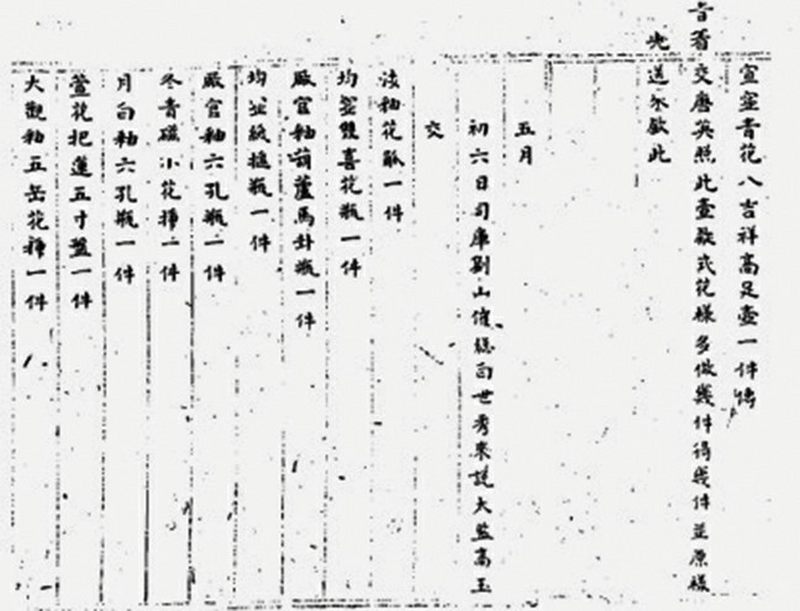 宣窑青花八吉祥高足壶一件傳
旨着交唐英照此壺款式花樣多做幾件得幾件並原樣
先送
五月
初六日司庫劉山
白世秀來說太監高玉
交
釉花觚一件
均釜雙喜花瓶一件
廠官釉葫蘆馬卦瓶一件
均釜紙搥瓶一件
廠官釉六孔瓶一件
冬青磁小花揷一件
月白釉六孔瓶一件
花把蓮五寸盤一件
大觀釉五岳花揷一件